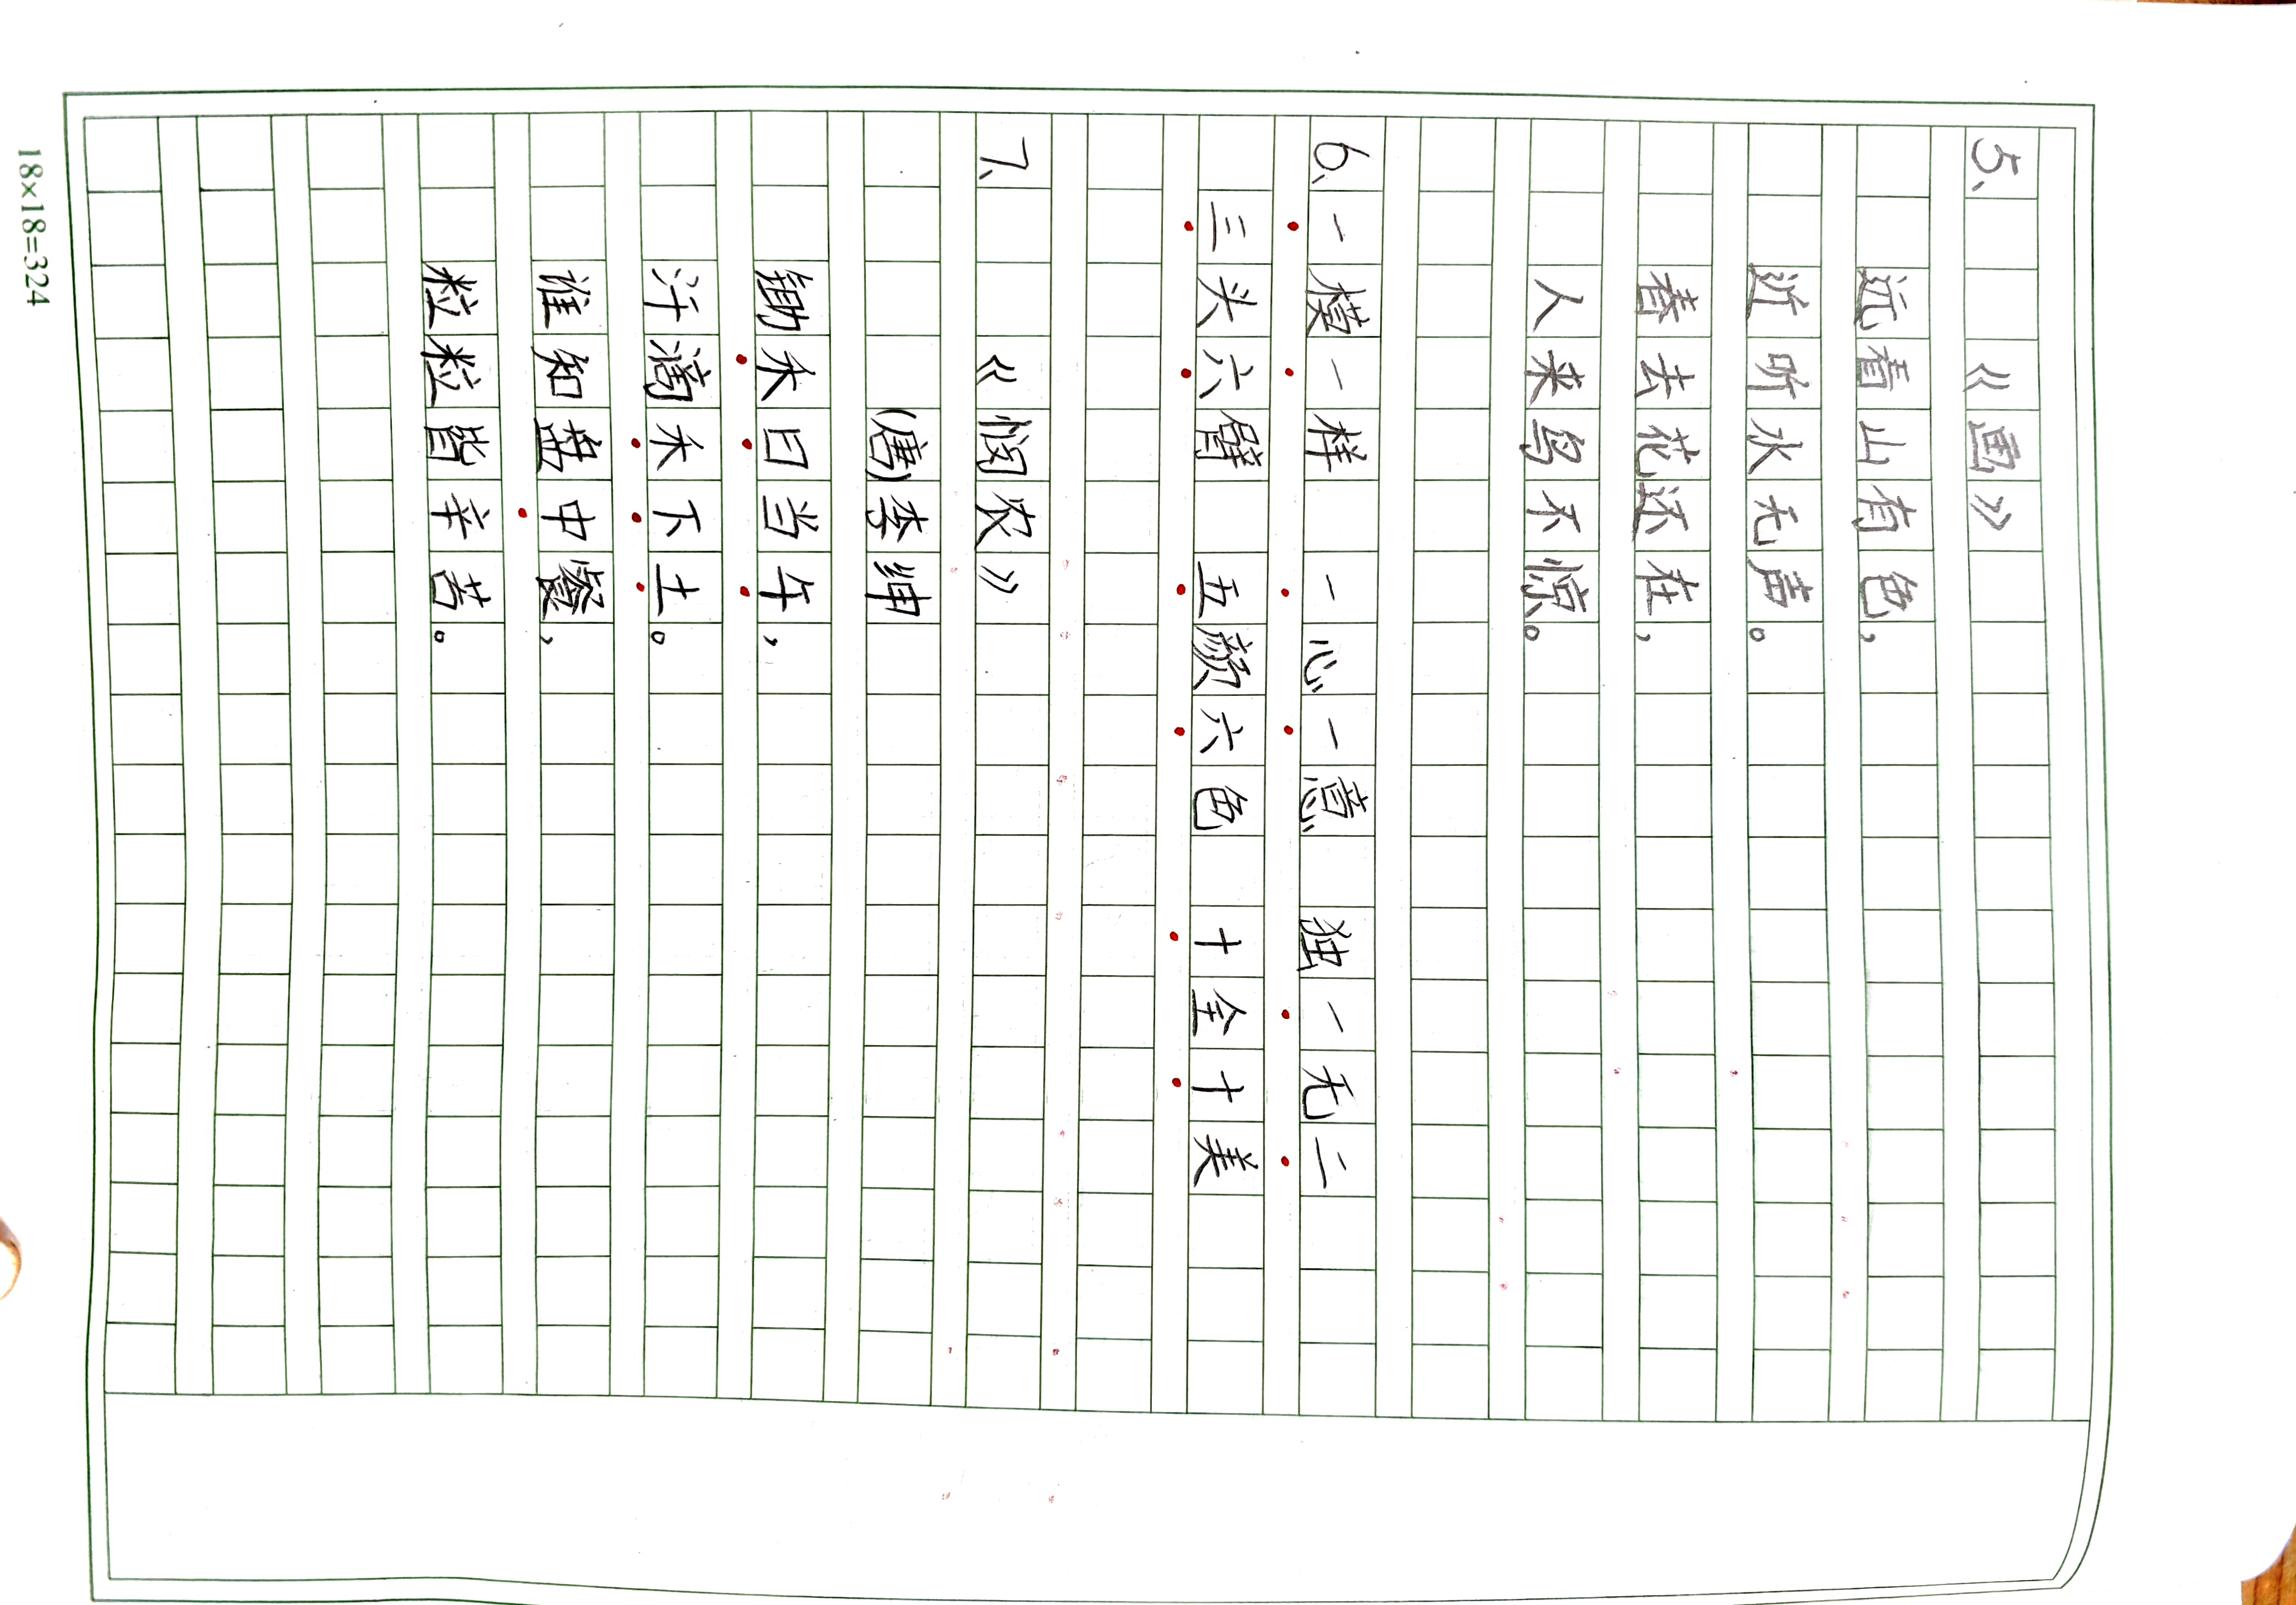 5、《画》
远看山有色,
近听水无声。
春去花还在,
人来鸟不惊。
6、一模一样 一心一意 独一无二
三头六臂 五颜六色 十全十美
7、《悯农》
(唐)李绅
锄禾日当午,
汗滴禾下土。
谁知盘中餐,
粒粒皆辛苦。
18×18=324